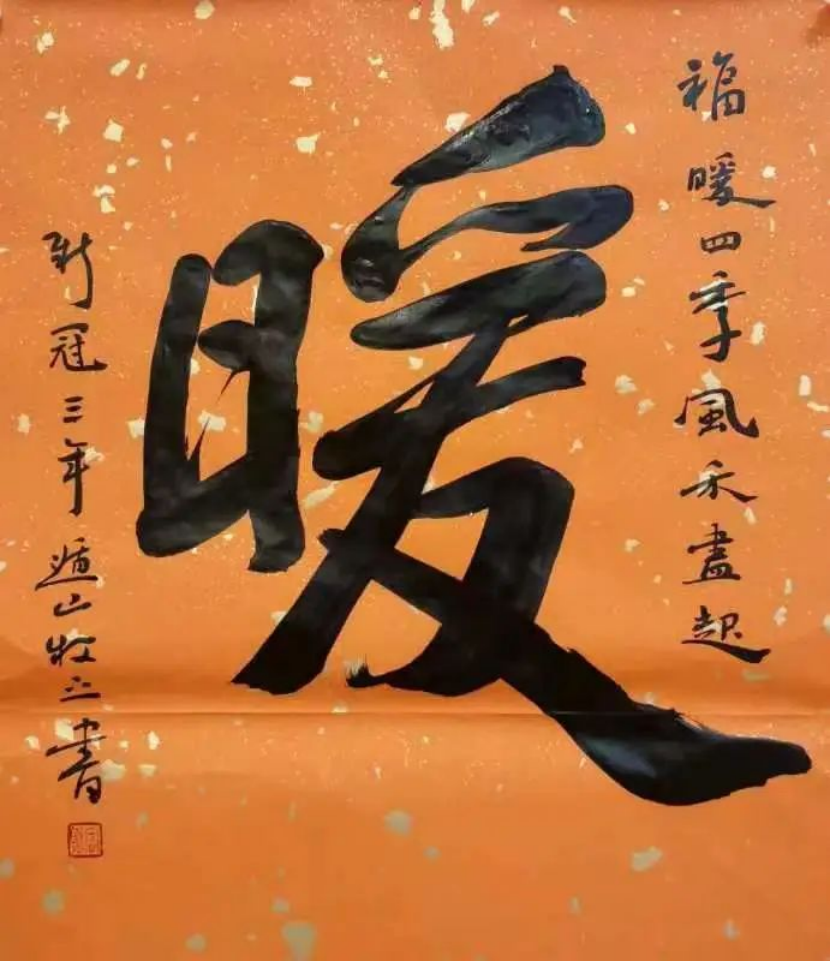 福暖四季風禾盡起
暖
新冠三年遁山牧之書